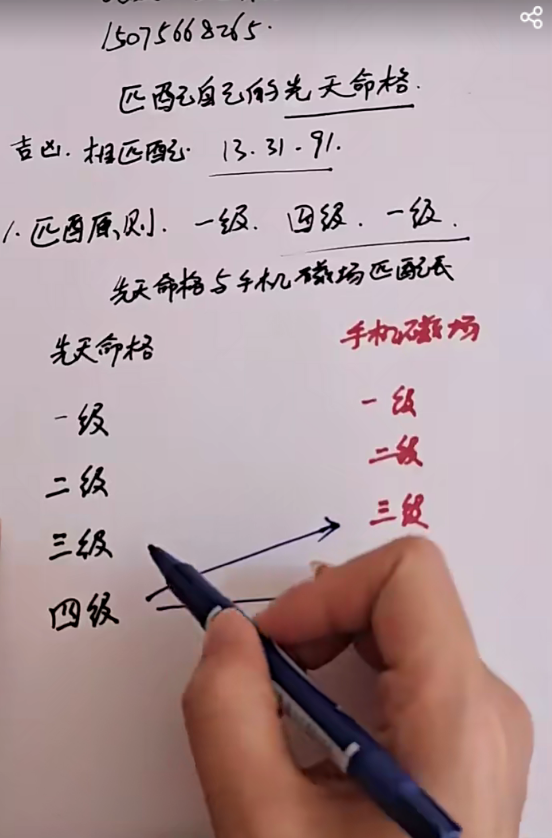 15075668265.
匹配自己的先天命格.
吉凶.相匹配 13.31.91.
1.匹配原则.一级.四级.一级.
先天命格与手机磁场匹配
先天命格 手机磁场
一级 一级
二级 二级
三级 三级
四级